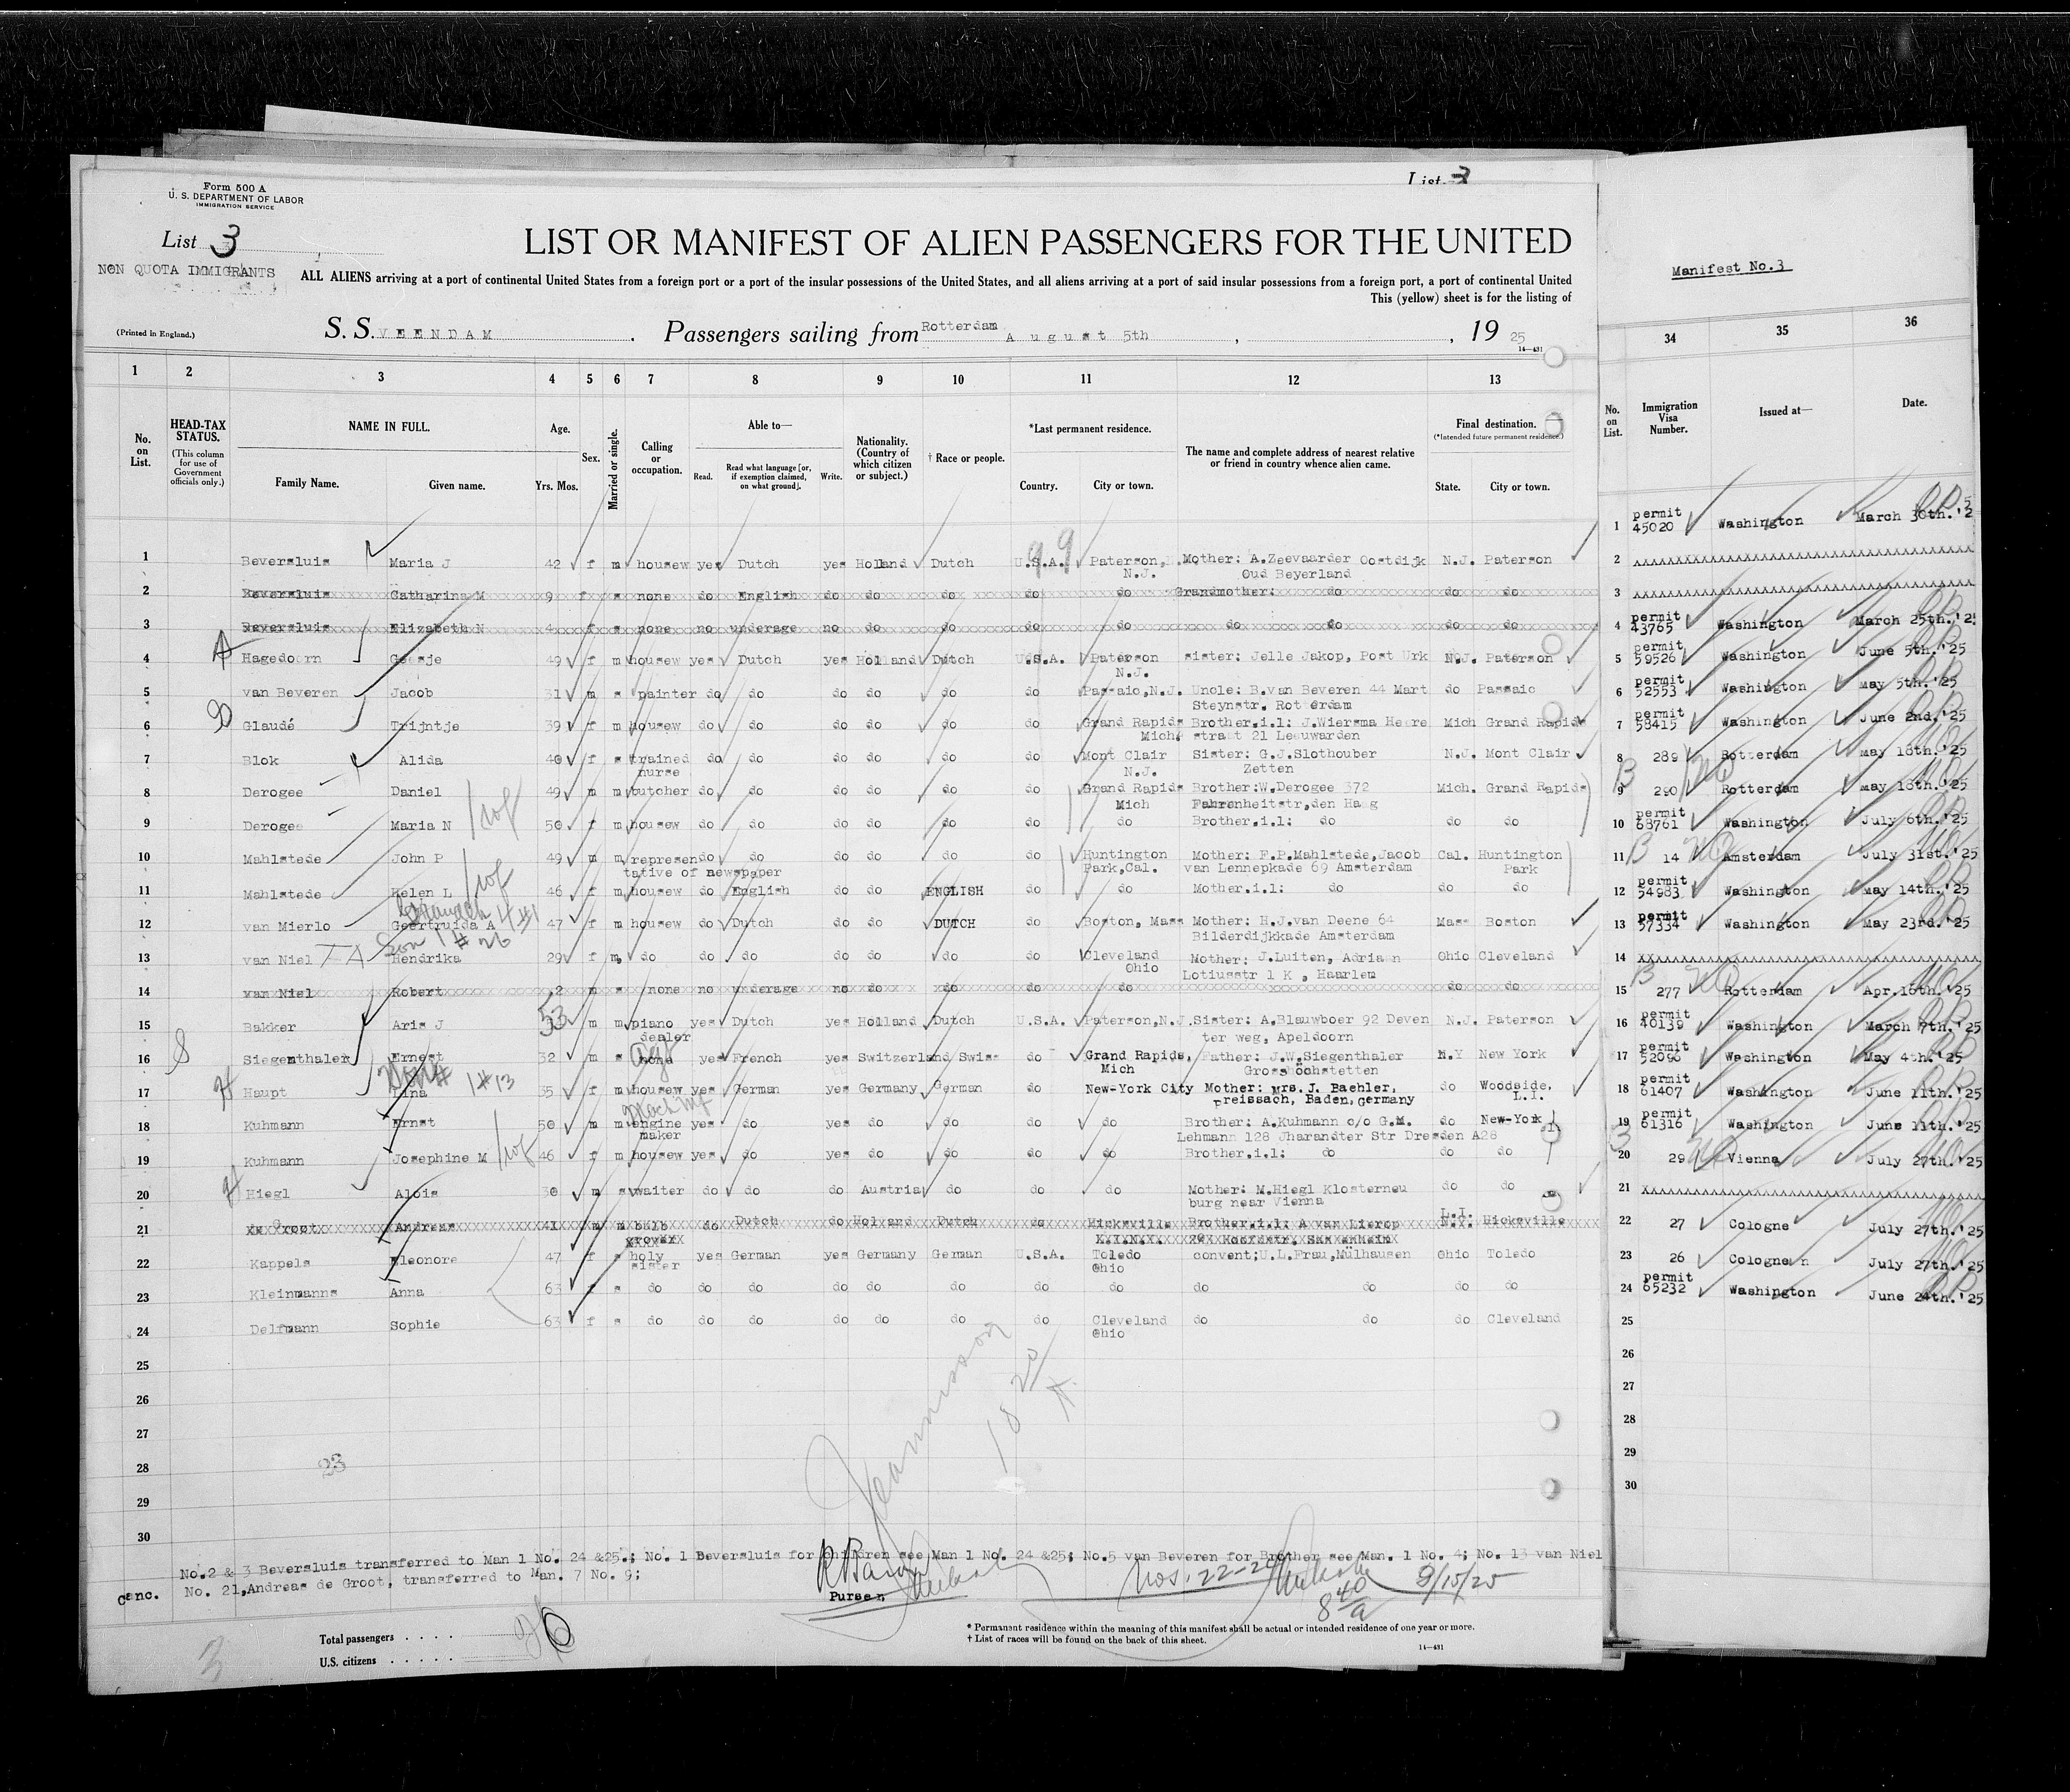 Form 500 A
U. S. DEPARTMENT OF LABOR
IMMIGRATION SERVICE
List 3
List 3
NON QUOTA IMMIGRANTS
LIST OR MANIFEST OF ALIEN PASSENGERS FOR THE UNITED
ALL ALIENS arriving at a port of continental United States from a foreign port or a port of the insular possessions of the United States, and all aliens arriving at a port of said insular possessions from a foreign port, a port of continental United
This (yellow) sheet is for the listing of
(Printed in England.)
S. S. VEENDAM . Passengers sailing from Rotterdam August 5th , , 19 25
14—431
1 2 3 4 5 6 7 8 9 10 11 12 13
No. on List.
HEAD-TAX STATUS.
(This column for use of Government officials only.)
NAME IN FULL.
Family Name. Given name.
Age.
Yrs. Mos.
Sex.
Married or single.
Calling or occupation.
Able to—
Read. Read what language [or, if exemption claimed, on what ground]. Write.
Nationality. (Country of which citizen or subject.)
† Race or people.
*Last permanent residence.
Country. City or town.
The name and complete address of nearest relative or friend in country whence alien came.
Final destination.
(*Intended future permanent residence.)
State. City or town.
1 Beversluis Maria J 42 f m housew yes Dutch yes Holland Dutch U.S.A. Paterson, N.J. Mother: A.Zeevaarder Oostdijk Oud Beyerland N.J. Paterson
2 Beversluis Catharina M 9 f s none do English do do do do do Grandmother: do do do
3 Beversluis Elizabeth N 4 f s none no underage no do do do do do do do do
4 Hagedoorn Geesje 49 f m housew yes Dutch yes Holland Dutch U.S.A. Paterson N.J. sister: Jelle Jakop, Post Urk N.J. Paterson
5 van Beveren Jacob 31 m s painter do do do do do do Passaic, N.J. Uncle: B.van Beveren 44 Mart Steynstr. Rotterdam do Passaic
6 Glaudé Trijntje 39 f m housew do do do do do do Grand Rapids Mich. Brother.i.l: J.Wiersma Heere straat 21 Leeuwarden Mich Grand Rapids
7 Blok Alida 40 f s trained nurse do do do do do do Mont Clair N.J. Sister: G.J.Slothouber Zetten N.J. Mont Clair
8 Derogee Daniel 49 m m butcher do do do do do do Grand Rapids Mich Brother:W.Derogee 372 Fahrenheitstr,den Haag Mich. Grand Rapids
9 Derogee Maria N 50 f m housew do do do do do do do Brother.i.l: do do do
10 Mahlstede John P 49 m m representative of newspaper do do do do do do Huntington Park,Cal. Mother: F.P.Mahlstede,Jacob van Lennepkade 69 Amsterdam Cal. Huntington Park
11 Mahlstede Helen L 46 f m housew do English do do ENGLISH do do Mother.i.l: do do do
12 van Mierlo Geertruida A 47 f m housew do Dutch do do DUTCH do Boston, Mass Mother: H.J.van Deene 64 Bilderdijkkade Amsterdam Mass Boston
13 van Niel Hendrika 29 f m, do do do do do do do Cleveland Ohio Mother: J.Luiten, Adriaan Lotiusstr 1 K , Haarlem Ohio Cleveland
14 van Niel Robert 2 m s none no underage no do do do do do do
15 Bakker Aris J 53 m m piano dealer yes Dutch yes Holland Dutch U.S.A. Paterson,N.J. Sister: A.Blauwboer 92 Deventer weg, Apeldoorn N.J. Paterson
16 Siegenthaler Ernest 32 m s none yes French yes Switzerland Swiss do Grand Rapids, Mich Father: J.W.Siegenthaler Grosshöchstetten N.Y New York
17 Haupt Lina 35 f m housew yes German yes Germany German do New-York City Mother: mrs.J. Baehler, preissach, Baden, germany do Woodside, L.I.
18 Kuhmann Ernst 50 m m engine maker yes do yes do do do do Brother: A.Kuhmann c/o G.M. Lehmann 128 Jharandter Str Dresden A28 do New-York
19 Kuhmann Josephine M 46 f m housew yes do yes do do do do Brother.i.l: do do do
20 Hiegl Alois 30 m s waiter do do do Austria do do do Mother: M.Hiegl Klosterneuburg near Vienna do do
21 de Groot Andreas 41 m m bulb grower do Dutch do Holland Dutch do Hicksville Brother.i.l: A van Lierop L.I. N.Y. Hicksville
22 Kappels Eleonore 47 f s holy sister yes German yes Germany German U.S.A. Toledo Ohio convent;U.L.Frau,Mülhausen Ohio Toledo
23 Kleinmanns Anna 63 f s do do do do do do do do do do do do
24 Delfmann Sophie 63 f s do do do do do do do Cleveland Ohio do do do Cleveland
25
26
27
28
29
30
23
No.2 & 3 Beversluis transferred to Man 1 No. 24 &25.; No. 1 Beversluis for children see Man 1 No. 24 &25; No.5 van Beveren for Brother see Man. 1 No. 4; No. 13 van Niel
Canc. No. 21,Andreas de Groot, transferred to Man. 7 No. 9;
Purser
Nos. 22-24
8 40/a 8/15/25
Total passengers . . . .
U.S. citizens . . . . .
3
* Permanent residence within the meaning of this manifest shall be actual or intended residence of one year or more.
† List of races will be found on the back of this sheet.
14—431
Manifest No.3
34 35 36
No. on List. Immigration Visa Number. Issued at— Date.
1 permit 45020 Washington March 30th.'25
2
3
4 permit 43765 Washington March 25th.'25
5 permit 59526 Washington June 5th.'25
6 permit 52553 Washington May 5th.'25
7 permit 58415 Washington June 2nd.'25
8 289 Rotterdam May 18th.'25
9 290 Rotterdam May 18th.'25
10 permit 68761 Washington July 6th.'25
11 14 Amsterdam July 31st.'25
12 permit 54983 Washington May 14th.'25
13 permit 57334 Washington May 23rd.'25
14
15 277 Rotterdam Apr.16th.'25
16 permit 40139 Washington March 7th.'25
17 permit 52096 Washington May 4th.'25
18 permit 61407 Washington June 11th.'25
19 permit 61316 Washington June 11th.'25
20 29 Vienna July 27th.'25
21
22 27 Cologne July 27th.'25
23 26 Cologne July 27th.'25
24 permit 65232 Washington June 24th.'25
25
26
27
28
29
30